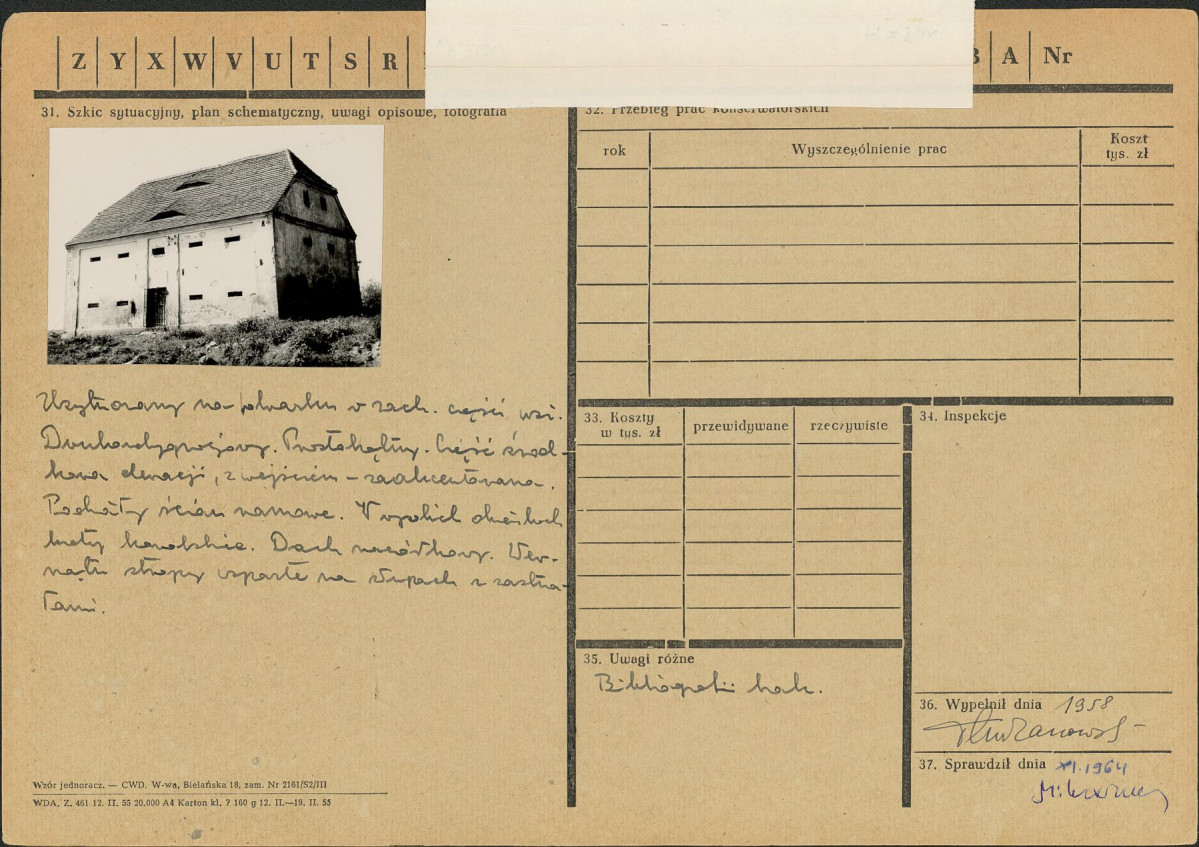 Z Y X W V U T S R B A Nr
31. Szkic sytuacyjny, plan schematyczny, uwagi opisowe, fotografia
Usytuowany na folwarku w zach. części wsi.
Dwukondygnacjowy. Prostokątny. Część środ-
kowa elewacji, z wejściem – zaakcentowana.
ścian ramowe. W wąskich okienkach
kraty kowalskie. Dach naczółkowy. Wew-
nątrz stropy wsparte na słupach z zastrza-
łami.
Wzór jednoracz. — CWD, W-wa, Bielańska 18, zam. Nr 2161/S2/III
WDA, Z. 461 12. II. 55 20.000 A4 Karton kl. ? 160 g 12. II.—19. II. 55
32. Przebieg prac konserwatorskich
rok Wyszczególnienie prac Koszt
tys. zł
33. Koszty
w tys. zł przewidywane rzeczywiste
34. Inspekcje
35. Uwagi różne
Bibliografii brak.
36. Wypełnił dnia 1958
37. Sprawdził dnia XI.1964